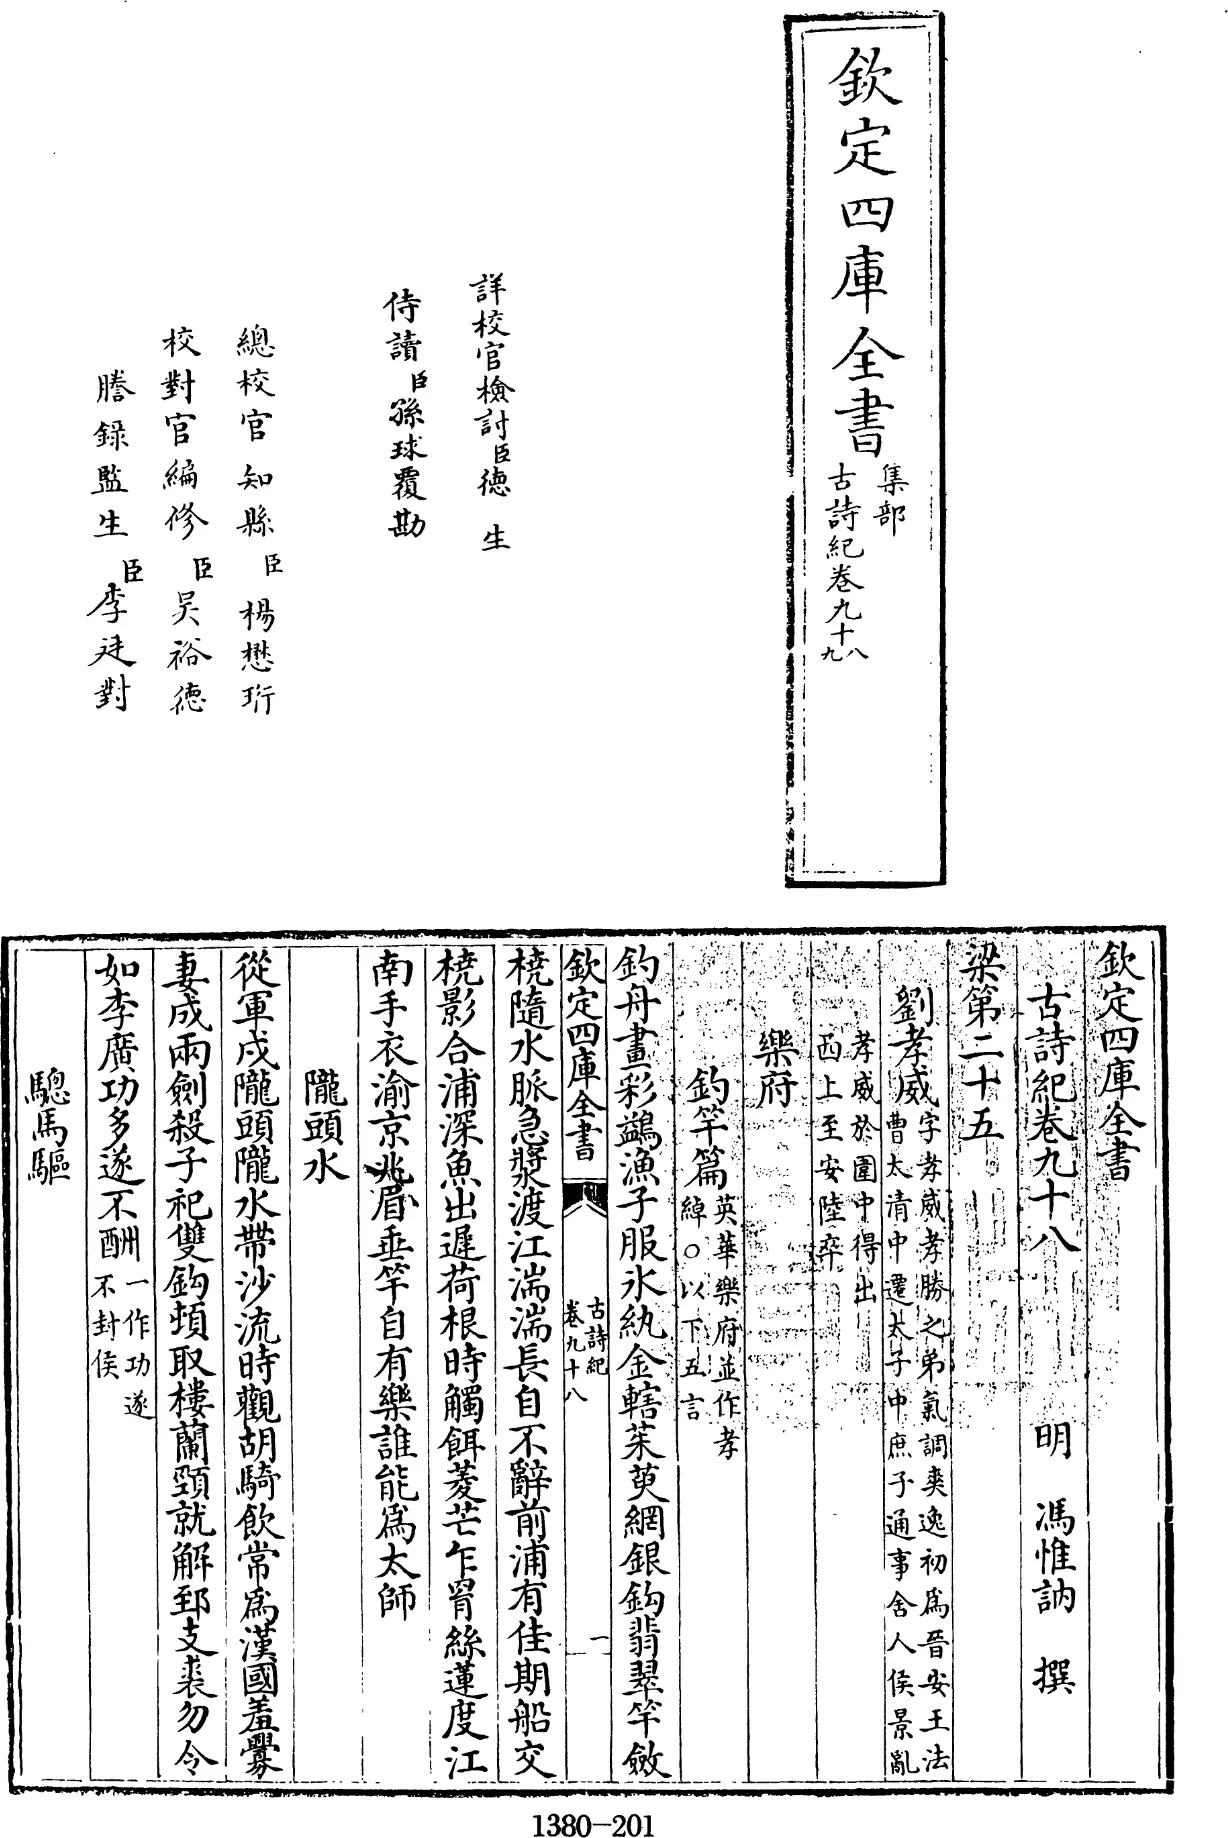 欽定四庫全書
集部
古詩紀卷九十八
九
詳校官檢討臣德生
侍讀臣孫球覆勘
總校官知縣臣楊懋珩
校對官編修臣吴裕德
謄錄監生臣李廷對
欽定四庫全書
古詩紀卷九十八 明 馮惟訥 撰
梁第二十五
劉孝威字孝威孝勝之弟氣調爽逸初為晉安王法
曹太清中遷太子中庶子通事舍人侯景亂
孝威於圍中得出
西上至安陸卒
樂府
釣竿篇英華樂府並作孝
綽○以下五言
釣舟畫彩鷁漁子服氷紈金轄茱萸網銀鈎翡翠竿斂
欽定四庫全書
古詩紀
卷九十八
一
橈隨水脈急槳渡江湍湍長自不辭前浦有佳期船交
橈影合浦深魚出遲荷根時觸餌菱芒乍罥絲蓮度江
南手衣渝京兆眉垂竿自有樂誰能為太師
隴頭水
從軍戍隴頭隴水帶沙流時觀胡騎飲常為漢國羞釁
妻成兩劍殺子祀雙鈎頓取樓蘭頸就解郅支裘勿令
如李廣功多遂不酬一作功遂
不封侯
驄馬驅
1380-201